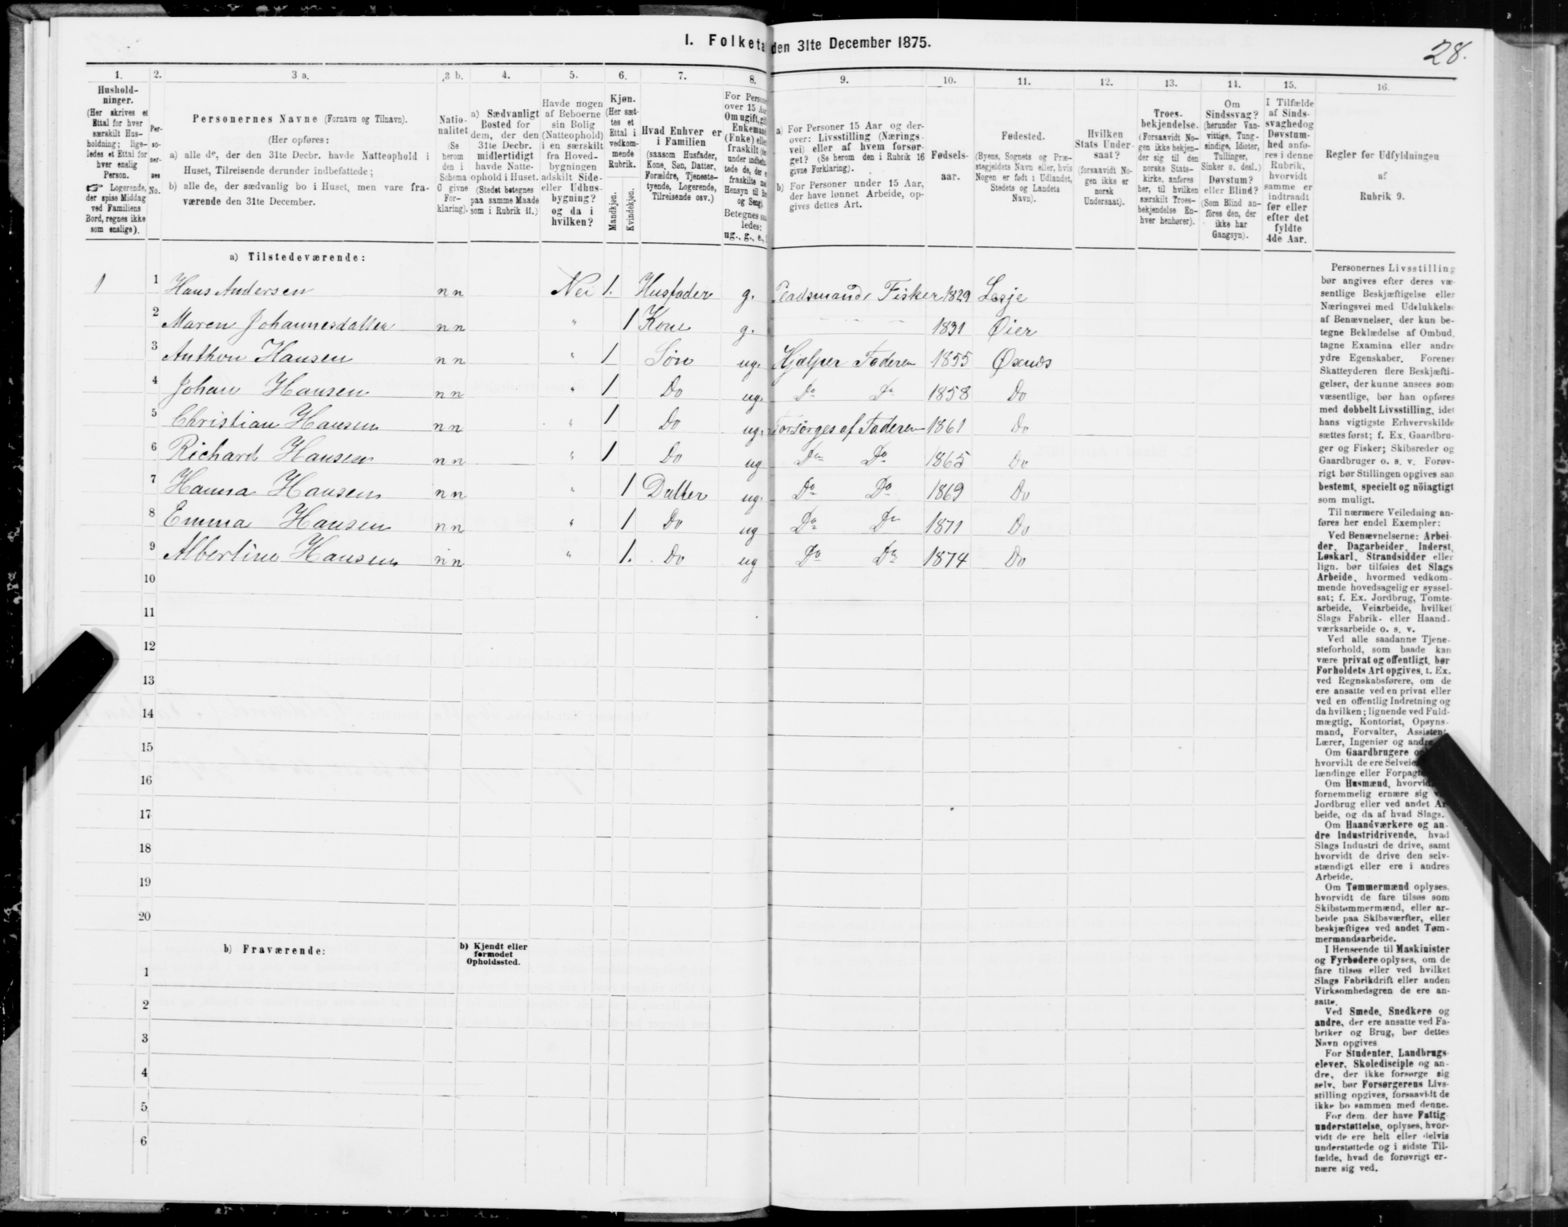 28.
I. Folketa den 31te December 1875.
1. 2. 3 a. 3 b. 4. 5. 6. 7. 8. 9. 10. 11. 12. 13. 14. 15. 16.
Hushold-
ninger.
(Her skrives et
Ettal for hver
særskilt Hus-
holdning; lige-
ledes et Ettal for
hver enslig
Person.
☞ Logerende,
der spise Middag
ved Familiens
Bord, regnes ikke
som enslige).
Per-
so-
ner-
nes
No.
Personernes Navne (Fornavn og Tilnavn).
(Her opføres:
a) alle de, der den 31te Decbr. havde Natteophold i
Huset, Tilreisende derunder indbefattede;
b) alle de, der sædvanlig bo i Huset, men vare fra-
værende den 31te December.
Natio-
nalitet
(Se
herom
den i
Schema
G givne
For-
klaring).
a) Sædvanligt
Bosted for
dem, der den
31te Decbr.
midlertidigt
havde Natte-
ophold i Huset.
(Stedet betegnes
paa samme Maade
som i Rubrik 11.)
Havde nogen
af Beboerne
sin Bolig
(Natteophold)
i en særskilt
fra Hoved-
bygningen
adskilt Side-
eller Udhus-
bygning?
og da i
hvilken?
Kjøn.
(Her sæt-
tes et
Ettal i
vedkom-
mende
Rubrik.
Mandkjøn.
Kvindekjøn.
Hvad Enhver er
i Familien
(saasom Husfader,
Kone, Søn, Datter,
Forældre, Tjeneste-
tyende, Logerende,
Tilreisende osv.)
For Person
over 15 Aar
Om ugift, gift
Enkemand
(Enke) eller
fraskilt
under indbefat-
tede de, der
fraskilte
Hensyn til
og Seng
Betegnes saa-
ledes:
ug., g., e.,
a) For Personer 15 Aar og der-
over: Livsstilling (Nærings-
vei) eller af hvem forsør-
get? (Se herom den i Rubrik 16
givne Forklaring).
b) For Personer under 15 Aar,
der have lønnet Arbeide, op-
gives dettes Art.
Fødsels-
aar.
Fødested.
(Byens, Sognets og Præ-
stegjeldets Navn eller, hvis
Nogen er født i Udlandet,
Stedets og Landets
Navn).
Hvilken
Stats Under-
saat?
(forsaavidt No-
gen ikke er
norsk
Undersaat).
Troes-
bekjendelse.
(Forsaavidt No-
gen ikke bekjen-
der sig til den
norske Stats-
kirke, anføres
her, til hvilken
særskilt Troes-
bekjendelse En-
hver henhører).
Om
Sindssvag?
(herunder Van-
vittige, Tung-
sindige, Idioter,
Tullinger,
Sinker o. desl.)
Døvstum?
eller Blind?
(Som Blind an-
føres den, der
ikke har
Gangsyn).
I Tilfælde
af Sinds-
svaghed og
Døvstum-
hed anfø-
res i denne
Rubrik,
hvorvidt
samme er
indtraadt
før eller
efter det
fyldte
4de Aar.
Regler for Udfyldningen
af
Rubrik 9.
a) Tilstedeværende:
1 1 Hans Andersen nn Nei 1. Husfader g. Pladsmand. Fisker 1829 Lesje
2 Maren Johannesdatter nn " 1 Kone g. 1831 Øier
3 Anthon Hansen nn " 1 Søn ug. Hjelper Faderen 1855 Øxnæs
4 Johan Hansen nn " 1 Do ug. Do Do 1858 Do
5 Christian Hansen nn " 1 Do ug. Forsørges af Faderen 1861 Do
6 Richard Hansen nn " 1 Do ug Do Do 1865 Do
7 Hanna Hansen nn " 1 Datter ug. Do Do 1869 Do
8 Emma Hansen nn " 1 Do ug Do Do 1871 Do
9 Albertine Hansen nn " 1. Do ug Do Do 1874 Do
10
11
12
13
14
15
16
17
18
19
20
b) Fraværende:
b) Kjendt eller
formodet
Opholdssted.
1
2
3
4
5
6
Personernes Livsstilling
bør angives efter deres væ-
sentlige Beskjæftigelse eller
Næringsvei med Udelukkelse
af Benævnelser, der kun be-
tegne Beklædelse af Ombud,
tagne Examina eller andre
ydre Egenskaber. Forener
Skatteyderen flere Beskjæfti-
gelser, der kunne ansees som
væsentlige, bør han opføres
med dobbelt Livsstilling, idet
hans vigtigste Erhvervskilde
sættes først; f. Ex. Gaardbru-
ger og Fisker; Skibsreder og
Gaardbruger o. s. v. Forøv-
rigt bør Stillingen opgives saa
bestemt, specielt og nöiagtigt
som muligt.
Til nærmere Veiledning an-
føres her endel Exempler:
Ved Benævnelserne: Arbei-
der, Dagarbeider, Inderst,
Løskarl, Strandsidder eller
lign. bør tilføies det Slags
Arbeide, hvormed vedkom-
mende hovedsagelig er syssel-
sat; f. Ex. Jordbrug, Tomte-
arbeide, Veiarbeide, hvilket
Slags Fabrik- eller Haand-
værksarbeide o. s. v.
Ved alle saadanne Tjene-
steforhold, som baade kan
være privat og offentligt, bør
Forholdets Art opgives, t. Ex.
ved Regnskabsførere, om de
ere ansatte ved en privat eller
ved en offentlig Indretning og
da hvilken; lignende ved Fuld-
mægtig, Kontorist, Opsyns-
mand, Forvalter, Assistent,
Lærer, Ingeniør og andre.
Om Gaardbrugere
hvorvidt de ere Selveiere
lændinge eller Forpagtere
Om Husmænd, hvorvidt
fornemmelig ernære sig
Jordbrug eller ved andet Ar-
beide, og da af hvad Slags.
Om Haandværkere og an-
dre Industridrivende, hvad
Slags Industri de drive, samt
hvorvidt de drive den selv-
stændigt eller ere i andres
Arbeide.
Om Tømmermænd oplyses,
hvorvidt de fare tilsøs som
Skibstømmermænd, eller ar-
beide paa Skibsværfter, eller
beskjæftiges ved andet Tøm-
mermandsarbeide.
I Henseende til Maskinister
og Fyrbødere oplyses, om de
fare tilsøs eller ved hvilket
Slags Fabrikdrift eller anden
Virksomhedsgren de ere an-
satte.
Ved Smede, Snedkere og
andre, der ere ansatte ved Fa-
briker og Brug, bør dettes
Navn opgives
For Studenter, Landbrugs-
elever, Skoledisciple og an-
dre, der ikke forsørge sig
selv, bør Forsørgerens Livs-
stilling opgives, forsaavidt de
ikke bo sammen med denne.
For dem, der have Fattig
understøttelse, oplyses, hvor-
vidt de ere helt eller delvis
understøttede og i sidste Til-
fælde, hvad de forøvrigt er-
nære sig ved.